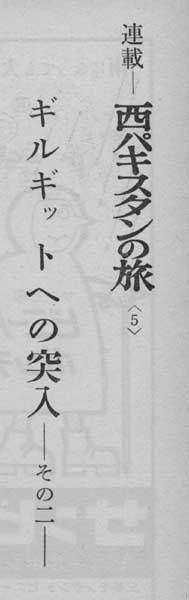 連載―西パキスタンの旅〈5〉
ギルギットへの突入―その二―